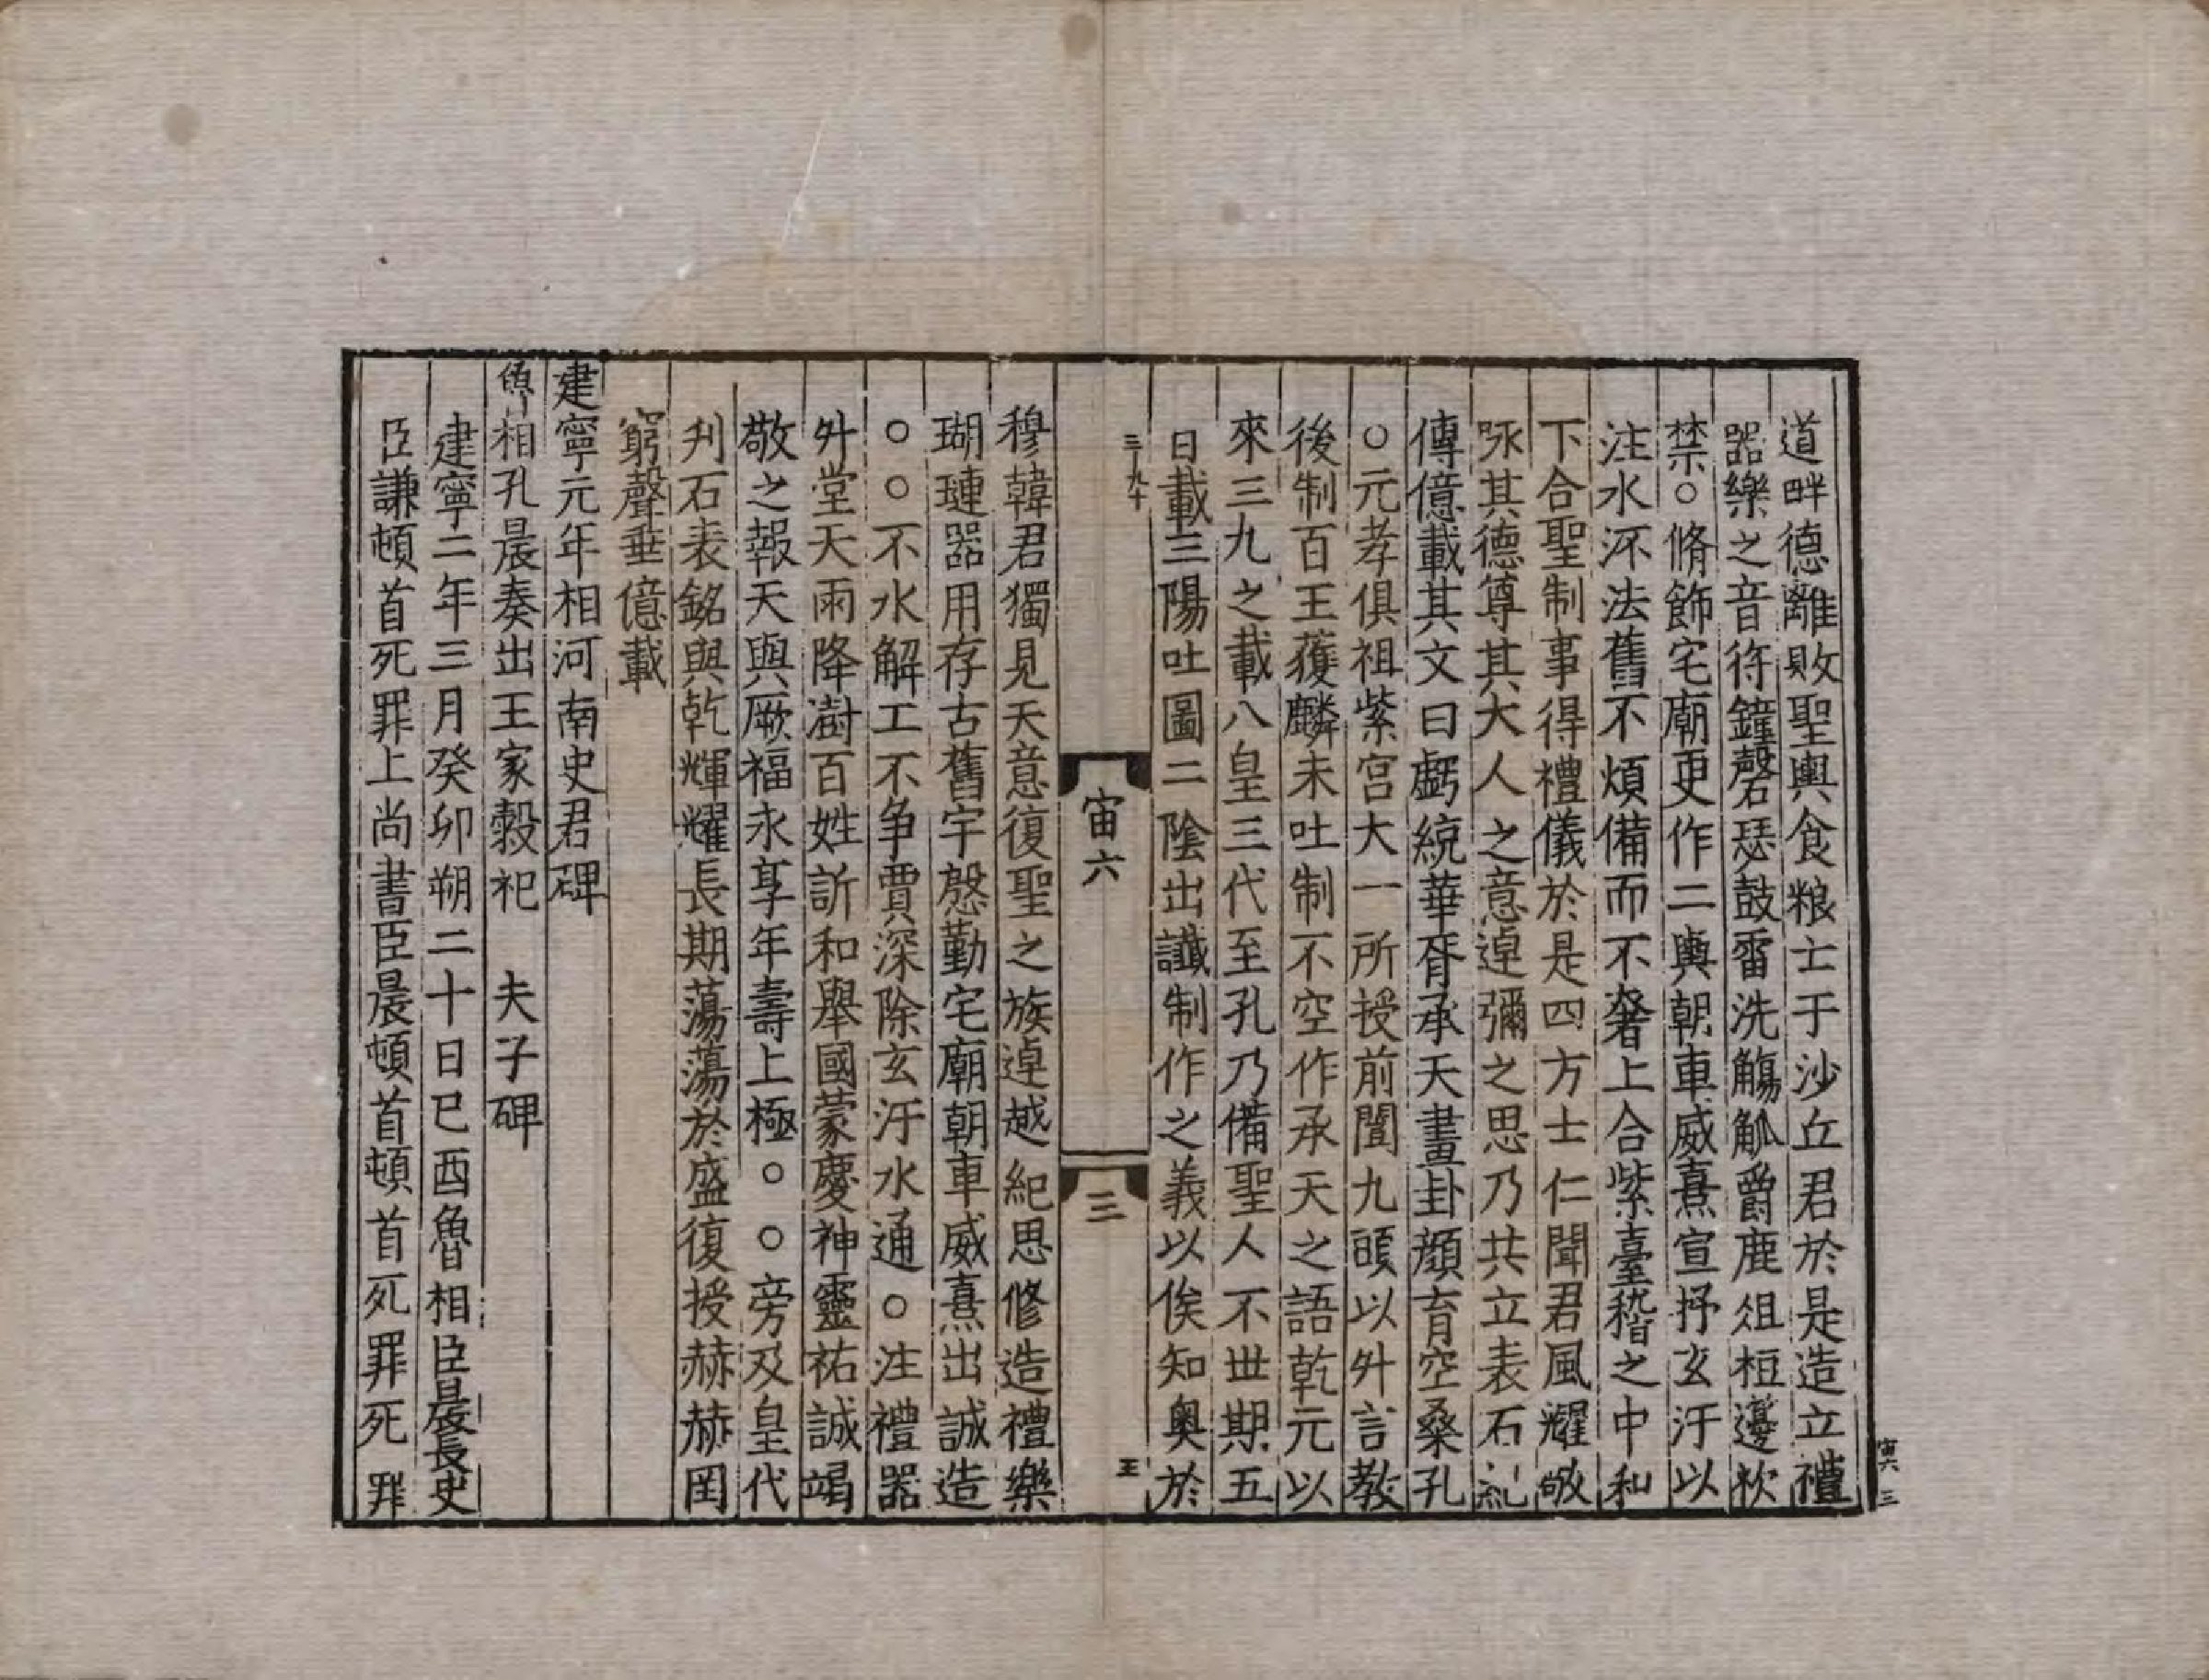 道畔德離敗聖輿食粮士于沙丘君於是造立禮
器樂之音符鐘磬瑟鼓雷洗觴觚爵鹿俎柦籩柉
禁○脩飾宅廟更作二輿朝車威熹宣抒玄汙以
注水沠法舊不煩備而不奢上合紫臺稽之中和
下合聖制事得禮儀於是四方士仁聞君風耀敬
㖟其德尊其大人之意逴彌之思乃共立表石紀
傳億載其文曰戲統華胥承天畫卦顏育空桑孔
○元孝俱祖紫宮大一所授前闓九頭以升言教
後制百王獲麟來吐制不空作承天之語乾元以
來三九之載八皇三代至孔乃備聖人不世期五
百載三陽吐圖二陰出讖制作之義以俟知奧於
三十九
宙六
三
王
穆韓君獨見天意復聖之族逴越紀思修造禮樂
瑚璉器用存古舊宇慇勤宅廟朝車威熹出誠造
○○不水解工不争賈深除玄汙水通○注禮器
升堂天雨降澍百姓訢和舉國蒙慶神靈祐誠竭
敬之報天與厥福永享年壽上極○○旁及皇代
刋石表銘與乾輝燿長期蕩蕩於盛復授赫赫罔
窮聲垂億載
建寧元年相河南史君碑
魯相孔晨奏出王家穀祀 夫子碑
建寧二年三月癸卯朔二十日巳酉魯相臣晨長史
臣謙頓首死罪上尚書臣晨頓首頓首死罪死罪